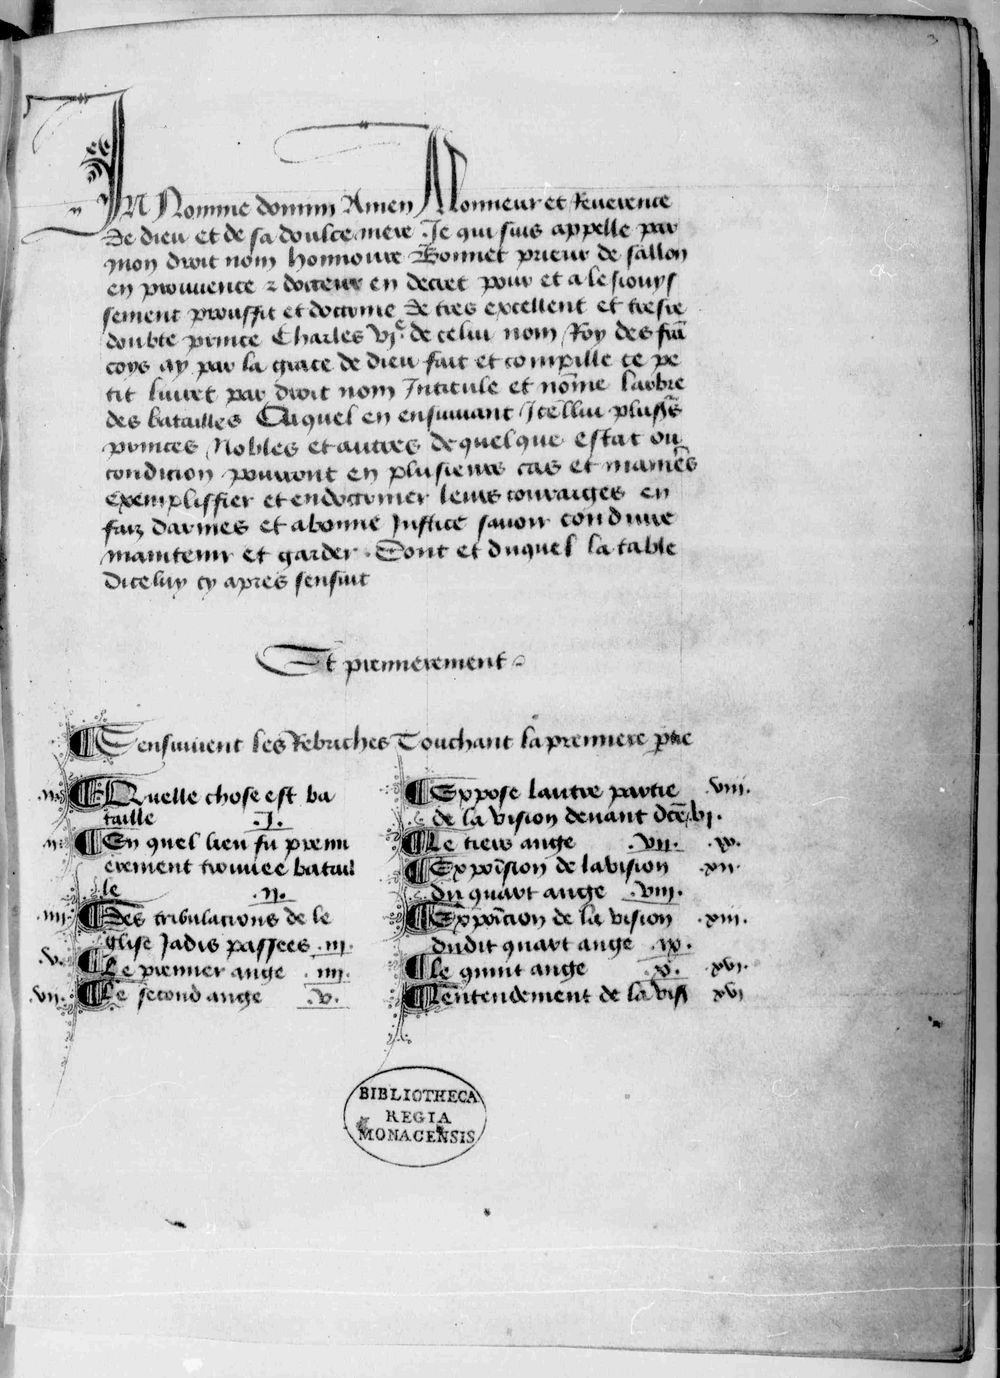 3
In Nomine domini Amen A lonneur et Reuerence
de dieu et de sa doulce mere . Je qui suis appelle par
mon droit nom honnoure Bonnet prieur de sallon
en prouuence z docteur en decret pour et a lesiouys
sement prouffit et doctrine de tres excellent et tresre
doubte prince Charles vje de celui nom Roy des frā
coys ay par la grace de dieu fait et compille ce pe
tit liuret par droit nom Intitule et nōme larbre
des batailles Ouquel en ensuiuant Icellui plusrs
princes Nobles et autres de quelque estat ou
condicion pourront en plusieurs cas et manieres
exempliffier et endoctriner leurs couraiges en
faiz darmes et a bonne Justice sauoir conduire
maintenir et garder . Dont et duquel la table
diceluy cy apres sensuit
Et premierement
Sensuiuent les Rebriches Touchant la premiere ptie
Quelle chose est ba
taille .j.
En quel lieu fu premi
erement trouuee batail
le .ij.
iiij. Des tribulacions de le
glise Jadis passees .iij.
.v. Le premier ange .iiij.
.vij. Le second ange .v.
Expose lautre partie .viij.
de la vision deuant dcē .vj.
Le tiers ange .vij. .xv.
Expōsion de la vision .xij.
du quart ange .viij.
Expoīcion de la vision .xiij.
dudit quart ange .ix.
Le quint ange .x. .xvj.
Lentendement de la viss xvj
BIBLIOTHECA
REGIA
MONACENSIS